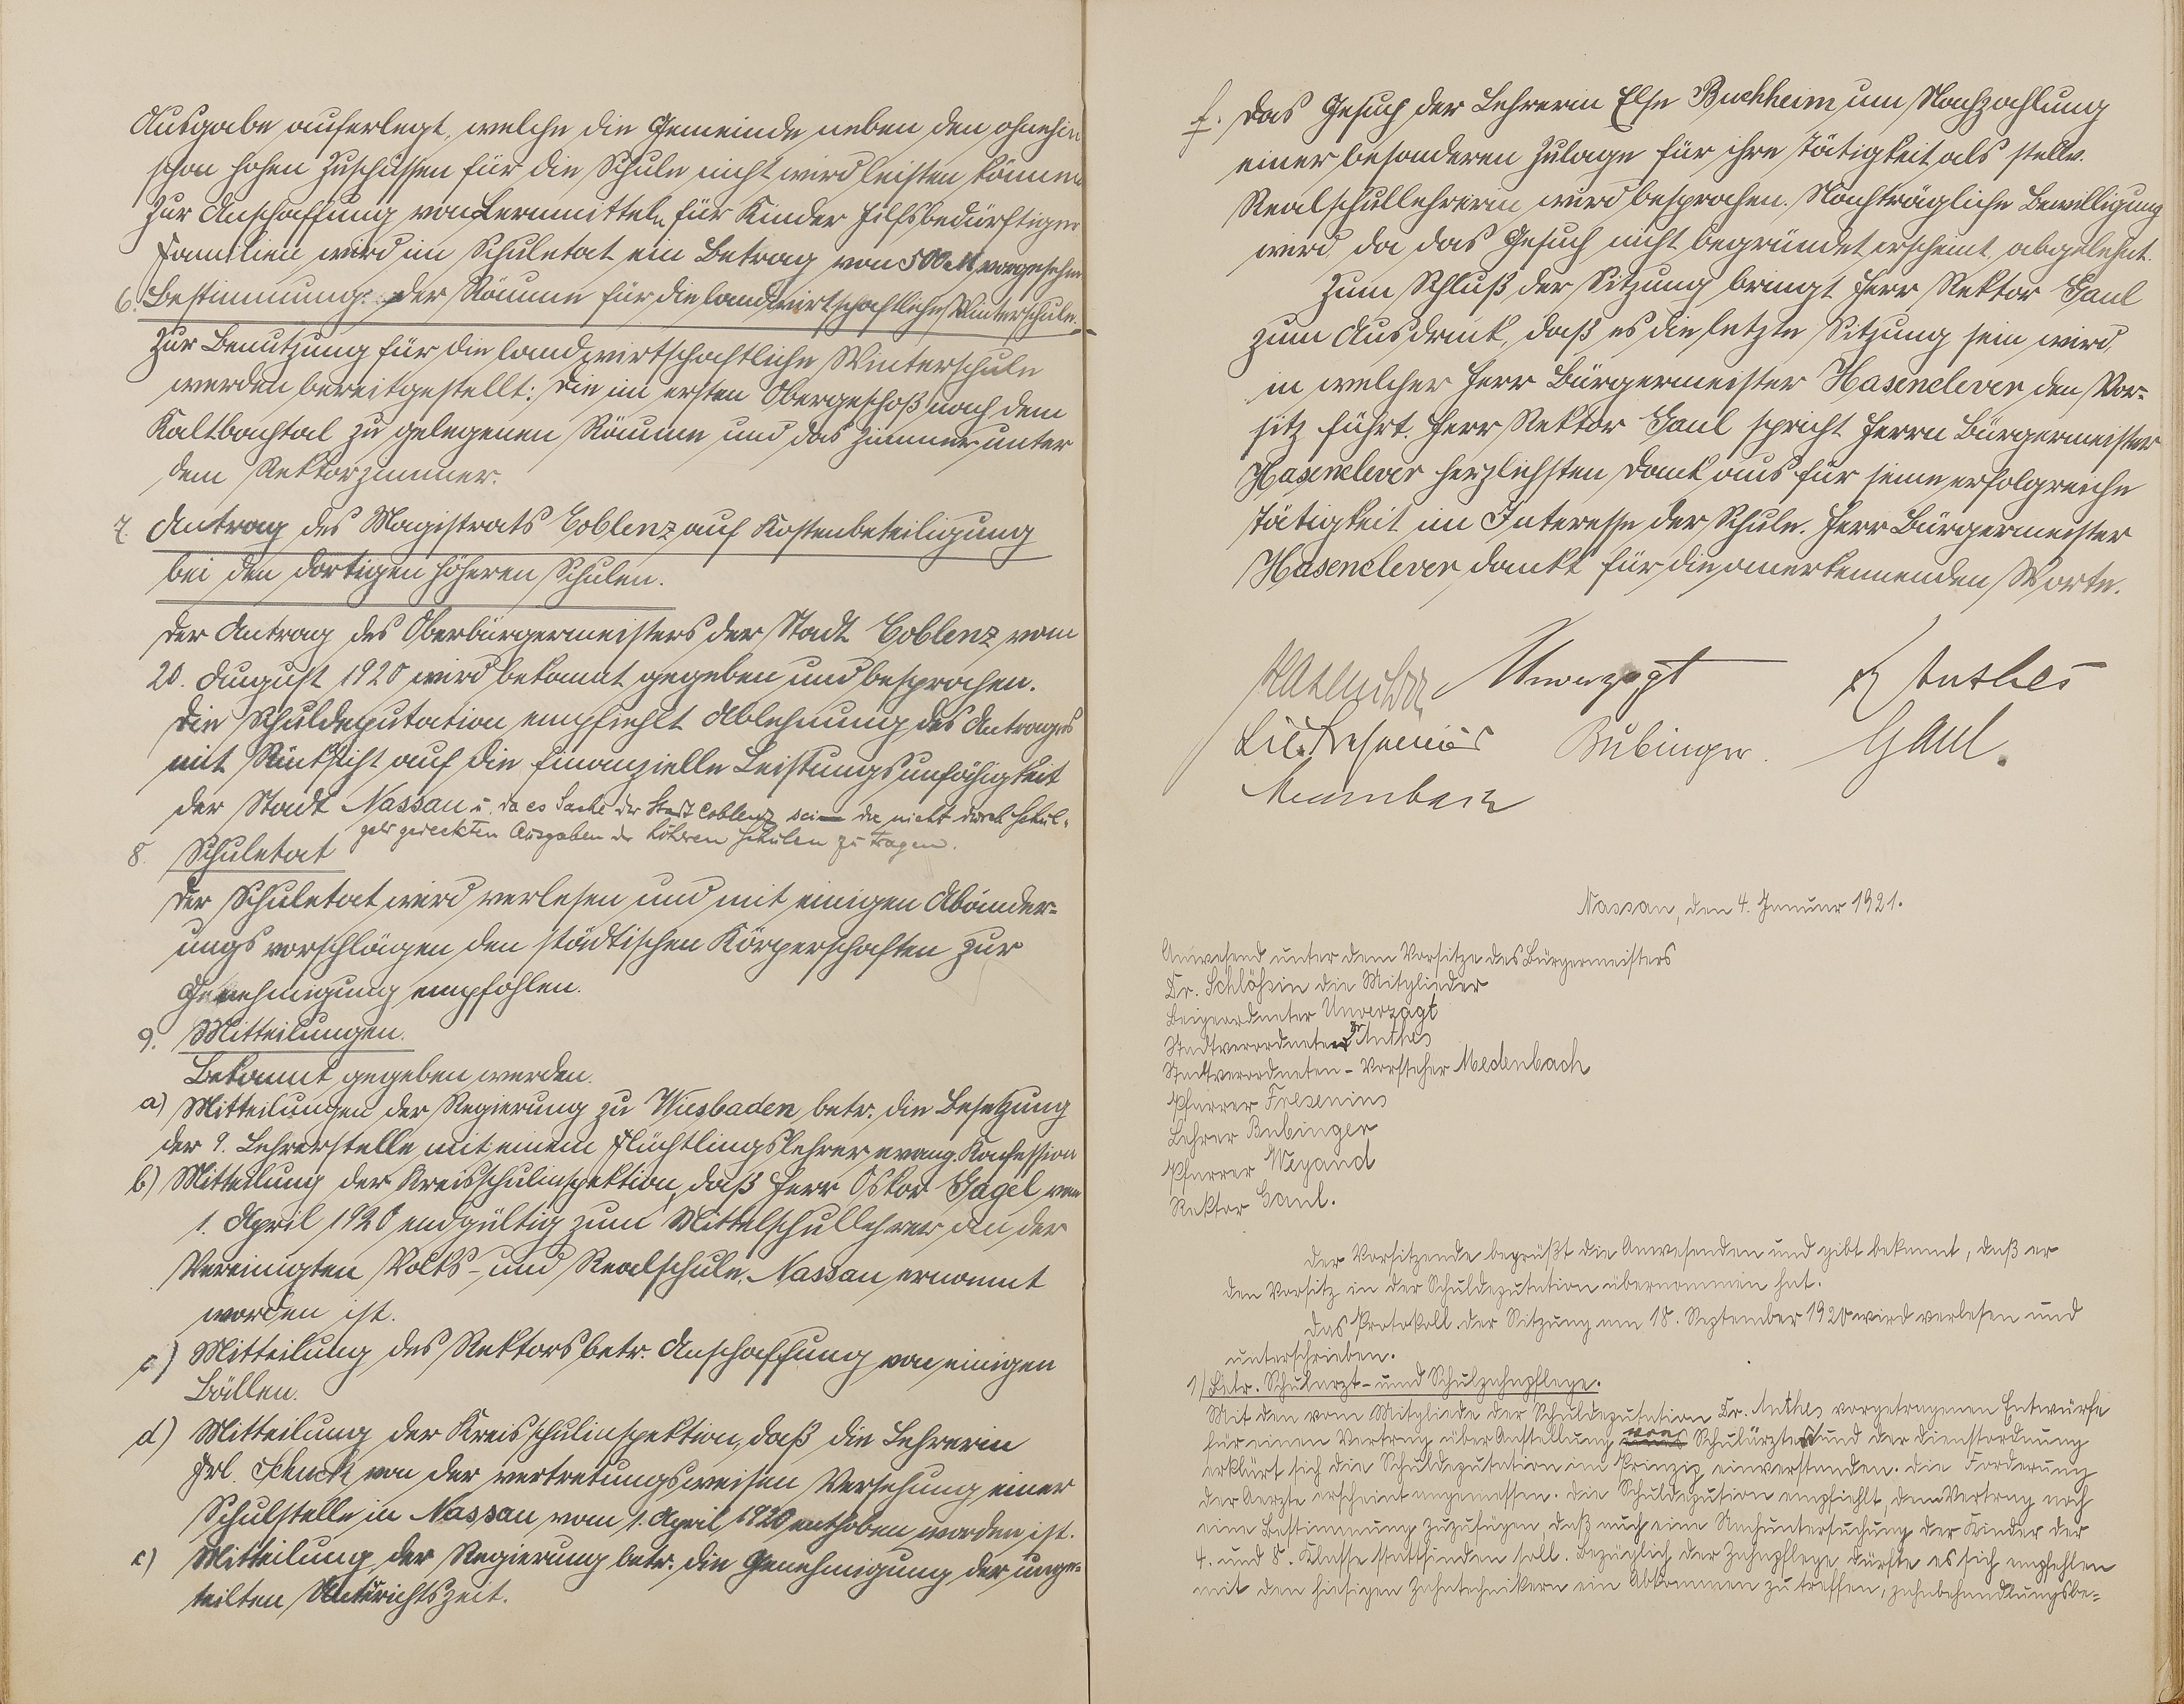 Ausgabe auferlegt, welche die Gemeinde neben den ohnehin
schon hohen Zuschüssen für die Schule nicht wird leisten können
Zur Anschaffung von Lernmitteln für Kinder hilfsbedürftiger
Familien wird im Schuletat ein Betrag von 500 M vorgesehen
6. Bestimmung der Räume für die landwirtschaftliche Winterschule.
Zur Benutzung für die landwirtschaftliche Winterschule
werden bereitgestellt: die im ersten Obergeschoß nach dem
Kaltbachtal zu gelegenen Räume und das Zimmer unter
dem Rektorzimmer.
7. Antrag des Magistrats Coblenz auf Kostenbeteiligung
bei den dortigen höheren Schulen.
Der Antrag des Oberbürgermeisters der Stadt Coblenz vom
20. August 1920 wird bekannt gegeben und besprochen.
Die Schuldeputation empfiehlt Ablehnung des Antrages
mit Rücksicht auf die finanzielle Leistungsunfähigkeit
der Stadt Nassau u. da es Sache der Stadt Coblenz sei die nicht durch Schul-
geld gedeckten Ausgaben der höheren Schulen zu tragen.
8. Schuletat
Der Schuletat wird verlesen und mit einigen Abänder-
ungsvorschlägen den städtischen Körperschaften zur
Genehmigung empfohlen.
9. Mitteilungen.
Bekannt gegeben werden.
a) Mitteilungen der Regierung zu Wiesbaden betr. die Besetzung
der 9. Lehrerstelle mit einem Flüchtlingslehrer evang. Konfession
b) Mitteilung der Kreisschulinspektion, daß Herr Oskar Gagel vom
1. April 1920 endgültig zum Mittelschullehrer an der
Vereinigten Volks- und Realschule Nassau ernannt
worden ist.
c) Mitteilung des Rektors betr. Anschaffung von einigen
Bällen.
d) Mitteilung der Kreisschulinspektion, daß die Lehrerin
Frl. Schuck von der vertretungsweisen Versehung einer
Schulstelle in Nassau vom 1. April 1920 enthoben worden ist.
e) Mitteilung der Regierung betr. die Genehmigung der unge-
teilten Unterrichtszeit.
f. Das Gesuch der Lehrerin Else Buchheim um Nachzahlung
einer besonderen Zulage für ihre Tätigkeit als stellv.
Realschullehrerin wird besprochen. Nachträgliche Bewilligung
wird, da das Gesuch nicht begründet erscheint, abgelehnt.
Zum Schluß der Sitzung bringt Herr Rektor Gaul
zum Ausdruck, daß es die letzte Sitzung sein wird,
in welcher Herr Bürgermeister Hasenclever den Vor-
sitz führt. Herr Rektor Gaul spricht Herrn Bürgermeister
Hasenclever herzlichsten Dank aus für seine erfolgreiche
Tätigkeit im Interesse der Schule. Herr Bürgermeister
Hasenclever dankt für die anerkennenden Worte.
Hasenclever Unverzagt Anthes
Lic. Fresenius Bubinger. Gaul.
Nassau, den 4. Januar 1921.
Anwesend unter dem Vorsitze des Bürgermeisters
Dr. Schlösin die Mitglieder
Beigeordneter Unverzagt
Stadtverordneter Dr Anthes
Stadtverordneten-Vorsteher Medenbach
Pfarrer Fresenius
Lehrer Bubinger
Pfarrer Weyand
Rektor Gaul.
Der Vorsitzende begrüßt die Anwesenden und gibt bekannt, daß er
den Vorsitz in der Schuldeputation übernommen hat.
Das Protokoll der Sitzung am 18. September 1920 wird verlesen und
unterschrieben.
1) Betr. Schularzt- und Schulzahnpflege.
Mit den vom Mitgliede der Schuldeputation Dr. Anthes vorgetragenen Entwürfe
für einen Vertrag über Anstellung von Schulärzten und der Dienstordnung
erklärt sich die Schuldeputation im Prinzip einverstanden. Die Forderung
der Aerzte erscheint angemessen. Die Schuldepution empfiehlt, dem Vertrag noch
eine Bestimmung zuzufügen, daß auch eine Nachuntersuchung der Kinder der
4. und 8. Klasse stattfinden soll. Bezüglich der Zahnpflege dürfte es sich empfehlen
mit den hiesigen Zahntechnikern ein Abkommen zu treffen, zahnbehandlungsbe-